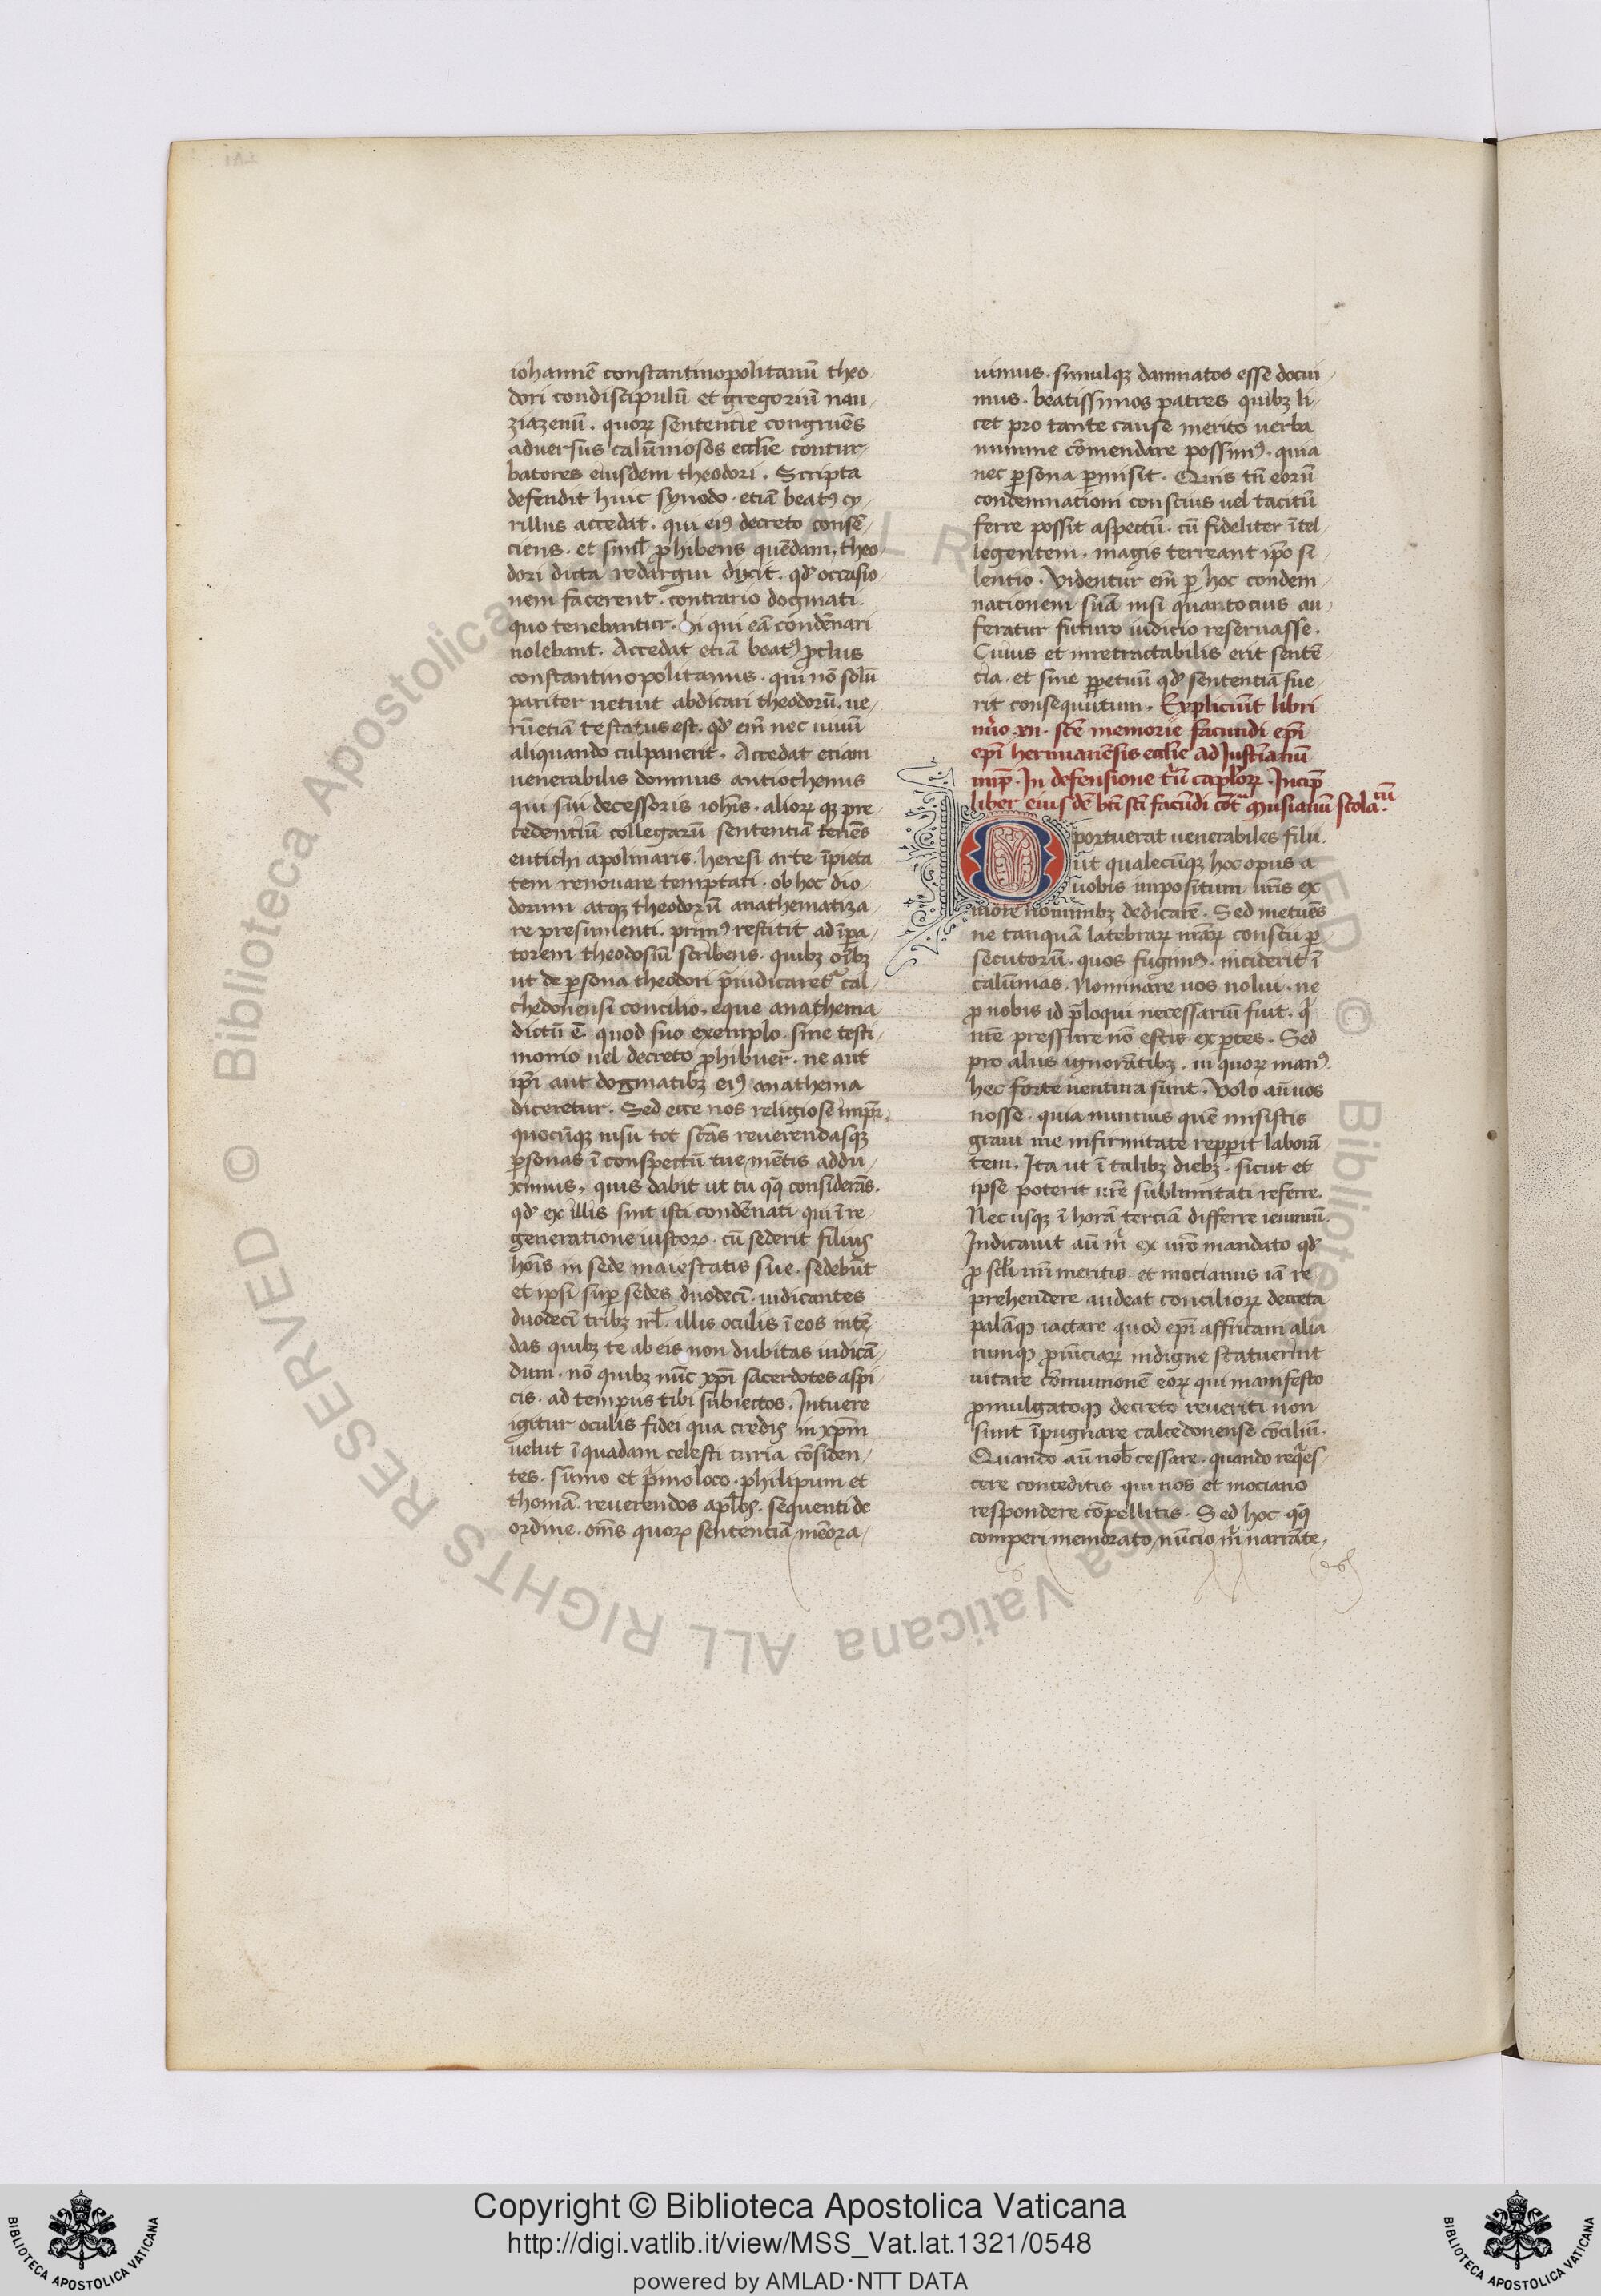 iohannē constantinopolitanū theo
dori condiscipulū et gregoriū nau
ziazenū. quoꝝ sentencie congruēs
aduersus calūniosos eccl̄ie contur
batores eiusdem theodori. Scripta
defendit huic synodo. etiā beatꝰ cy
rillus accedat. qui eiꝰ decreto consē
ciens. et simil̄ ꝓhibens quēdam. theo
dori dicta redargui dixit. qd̓ occasio
nem facerent. contrario dogmati.
quo tenebantur. hi qui eā condēnari
nolebant. Accedat etiā beatꝰ ꝓclus
constantinopolitanus. qui nō solū
pariter uetuit abdicari theodorū. ue
rū etiā testatus est. qd̓ em̄ nec uiuū
aliquando culpauerit. Accedat etiam
uenerabilis domnus antiochenus
qui sui decessoris ioh̄is. alioꝝ qꝫ pre
cedenciū collegarū sententiā tenēs
eutichi apolinaris. heresi arte īpieta
tem renouare temptati. ob hoc dio
dorum atqꝫ theodorū anathematiza
re presumenti. primꝰ restitit ad īꝑa
torem theodosiū scribens. quibꝫ oībꝫ
ut de ꝑsona theodori p̄iudicaretᷣ cal
chedonensi concilio. eque anathema
dictū ē. quod suo exemplo. sine testi
monio uel decreto ꝓhibuer̄. ne aut
ip̄i aut dogmatibꝫ eiꝰ anathema
diceretur. Sed ecce nos religiose imꝑr̄.
quocūqꝫ nisu tot sc̄as reuerendasqꝫ
ꝑsonas ī conspectū tue mētis addu
ximus. quis dabit ut tu qꝗ considerās.
qd̓ ex illis sint isti condēnati qui ī re
generatione iustoꝝ. cū sederit filius
hoīs in sede maiestatis sue. sedebūt
et ipsi suꝑ sedes duodecī. iudicantes
duodecī tribꝫ irl̄. illis oculis ī eos intē
das quibꝫ te ab eis non dubitas iudicā
dum. nō quibꝫ nūc xp̄i sacerdotes aspi
cis. ad tempus tibi subiectos. Intuere
igitur oculis fidei qua credis in xp̄m
uelut ī quadam celesti curia cōsiden
tes. sūmo et p̄mo loco. philipum et
thomā. reuerendos apl̄os. sequenti de
ordine. om̄s quoꝝ sententiā mēora
uimus. simulqꝫ damnatos esse docui
mus. beatissimos patres quibꝫ li
cet pro tante cause merito uerba
minime cōmendare possimꝰ. quia
nec ꝑsona ꝑmisit. Quis tn̄ eorū
condemnationi conscius uel tacitū
ferre possit aspectū. cū fideliter ītel
legentem. magis terreant ip̄o si
lentio. Videntur em̄ ꝑ hoc condem
nationem suā nisi quantocius au
feratur futuro iudicio reseruasse.
Cuius et inretractabilis erit sentē
tia. et sine ꝑpetuū qd̓ sententiā fue
rit consequutum. Expliciūt libri
nūo xii. sc̄e memorie facundi ep̄i
ep̄i hermianēsis eccl̄ie ad Justinianū
imꝑ. In defensione triū capl̄oꝝ. Incip̄
liber eiusdē bt̄i sc̄i facūdi cōtͣ Musianū scola.
cū
Oportuerat uenerabiles filii.
ut qualecūqꝫ hoc opus a
uobis impositum ur̄is ex
more nominibꝫ dedicarē. Sed metuēs
ne tanquā latebraꝝ nr̄aꝝ conscii ꝑ
secutorū. quos fugimꝰ. inciderit ī
calūnias. Nominare uos nolui. ne
ꝓ nobis id p̄loqui necessariū fuit. qͥ
nr̄e pressure nō estis exꝑtes. Sed
pro aliis ignorātibꝫ. in quoꝝ manꝰ
hec forte uentura sunt. Volo aū uos
nosse. quia nuncius quē misistis
graui me infirmitate repꝑit laborā
tem. Ita ut ī talibꝫ diebꝫ. sicut et
ipse poterit ur̄e sublimitati referre.
Nec usqꝫ ī horā terciā differre ieiuniū.
Indicauit aū m̄ ex ur̄o mandato qd̓
ꝓ scl̄i nr̄i meritis. et mocianus iā re
prehendere audeat concilioꝝ decreta
palāqꝫ iactare quod ep̄i affricani alia
rumqꝫ ꝓuīciaꝝ indigne statuerint
uitare cōmunionē eoꝝ qui manifesto
ꝓmulgatoqꝫ decreto reueriti non
sunt īpugnare calcedonense cōciliū.
Quando aū nob̄ cessare. quando reqͥes
cere conceditis qui nos et mociano
respondere cōpellitis. Sed hoc qꝗ
comperi memorato nūcio m̄ narrāte.
Copyright © Biblioteca Apostolica Vaticana
http://digi.vatlib.it/view/MSS_Vat.lat.1321/0548
powered by AMLAD·NTT DATA
BIBLIOTECA APOSTOLICA VATICANA
BIBLIOTECA APOSTOLICA VATICANA
© Biblioteca Apostolica Vaticana ALL RIGHTS RESERVED